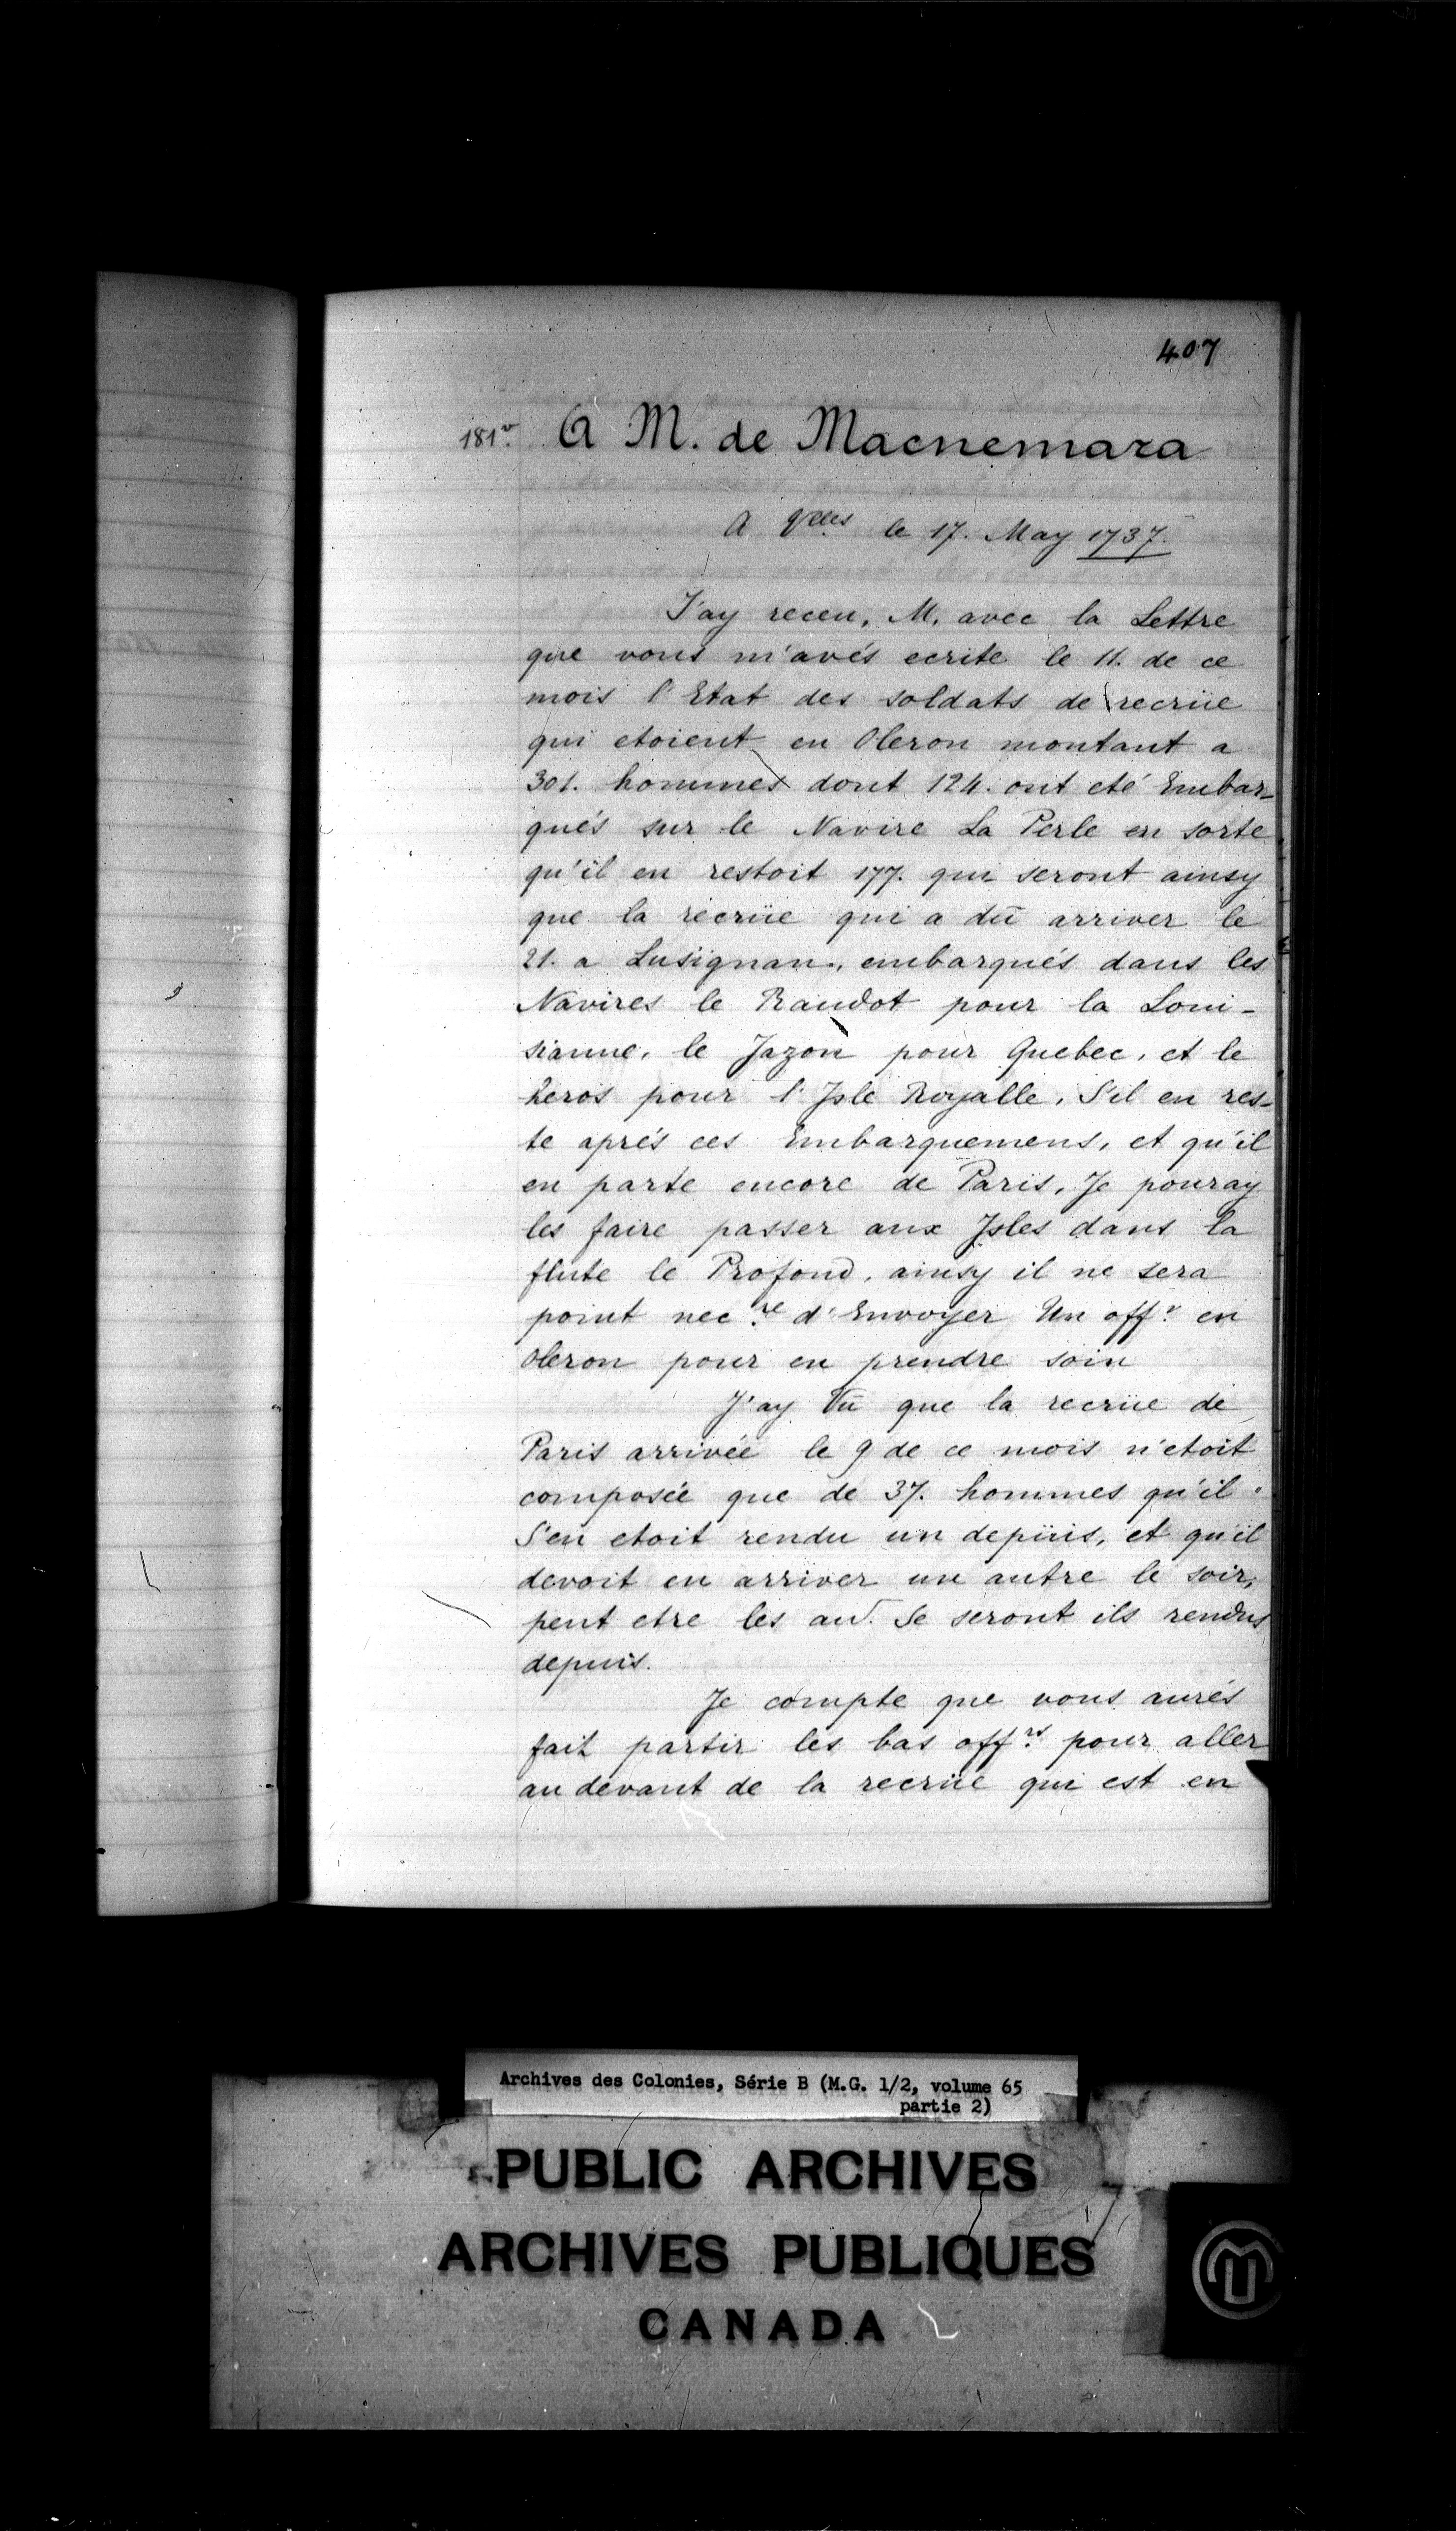 407
181v. A M. de Macnemara
A Vlles le 17. May 1737.
J'ay receu, M. avec la Lettre
que vous m'avés ecrite le 11. de ce
mois l'Etat des soldats de recrüe
qui etoient en Oleron montant a
301. hommes dont 124. ont eté Embar-
qués sur le Navire La Perle en sorte
qu'il en restoit 177. qui seront ainsy
que la recrüe qui a dû arriver le
21. a Lusignan, embarqués dans les
Navires le Raudot pour la Loui-
sianne, le Jazon pour Quebec, et le
heros pour l'Isle Royalle. S'il en res-
te aprés ces Embarquemens, et qu'il
en parte encore de Paris, Je pouray
les faire passer aux Isles dans la
flute le Profond, ainsy il ne sera
point necre d'Envoyer Un offr en
Oleron pour en prendre soin
J'ay Vû que la recrüe de
Paris arrivée le 9 de ce mois n'etoit
composée que de 37. hommes qu'il
S'en etoit rendu un depüis, et qu'il
devoit en arriver un autre le soir,
peut etre les au. Se seront ils rendus
depuis.
Je compte que vous aurés
fait partir les bas offrs pour aller
au devant de la recrüe qui est en
Archives des Colonies, Série B (M.G. 1/2, volume 65
partie 2)
PUBLIC ARCHIVES
ARCHIVES PUBLIQUES
CANADA